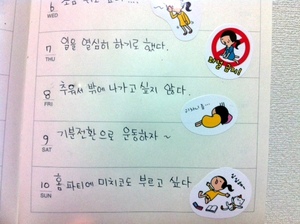 6
WED
7
THU
일을 열심히 하기로 했다.
8
FRI
추워서 밖에 나가고 싶지 않다.
9
SAT
기분전환으로 운동하자 ~
10
SUN
홈파티에 미치코도 부르고 싶다